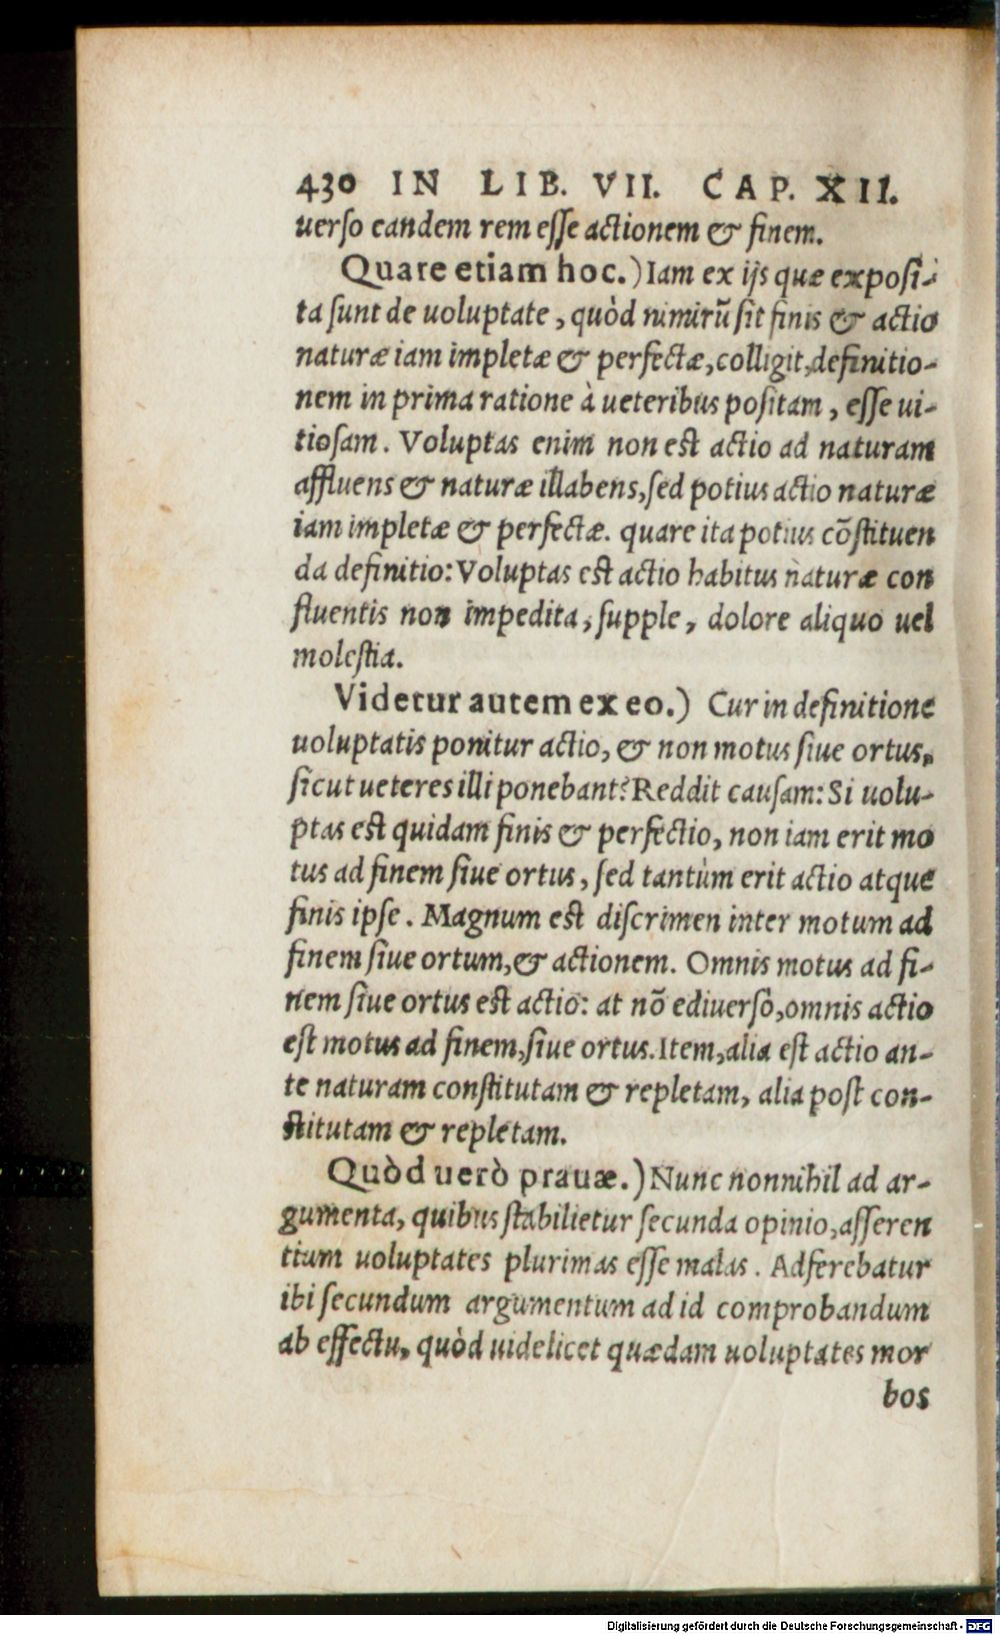 430 IN LIB. VII. CAP. XII.
uerso eandem rem esse actionem & finem.
Quare etiam hoc.) Iam ex ijs quæ exposi-
ta sunt de uoluptate, quòd nimirũ sit finis & actio
naturæ iam impletæ & perfectæ, colligit, definitio-
nem in prima ratione à ueteribus positam, esse ui-
tiosam. Voluptas enim non est actio ad naturam
affluens & naturæ illabens, sed potius actio naturæ
iam impletæ & perfectæ. quare ita potius cõstituen
da definitio: Voluptas est actio habitus naturæ con
fluentis non impedita, supple, dolore aliquo uel
molestia.
Videtur autem ex eo.) Cur in definitione
uoluptatis ponitur actio, & non motus siue ortus,
sicut ueteres illi ponebant? Reddit causam: Si uolu-
ptas est quidam finis & perfectio, non iam erit mo
tus ad finem siue ortus, sed tantùm erit actio atque
finis ipse. Magnum est discrimen inter motum ad
finem siue ortum, & actionem. Omnis motus ad fi-
nem siue ortus est actio: at nõ ediuerso, omnis actio
est motus ad finem, siue ortus. Item, alia est actio an-
te naturam constitutam & repletam, alia post con-
stitutam & repletam.
Quòd uerò prauæ.) Nunc nonnihil ad ar-
gumenta, quibus stabilietur secunda opinio, asseren
tium uoluptates plurimas esse malas. Adferebatur
ibi secundum argumentum ad id comprobandum
ab effectu, quòd uidelicet quædam uoluptates mor
bos
Digitalisierung gefördert durch die Deutsche Forschungsgemeinschaft - DFG